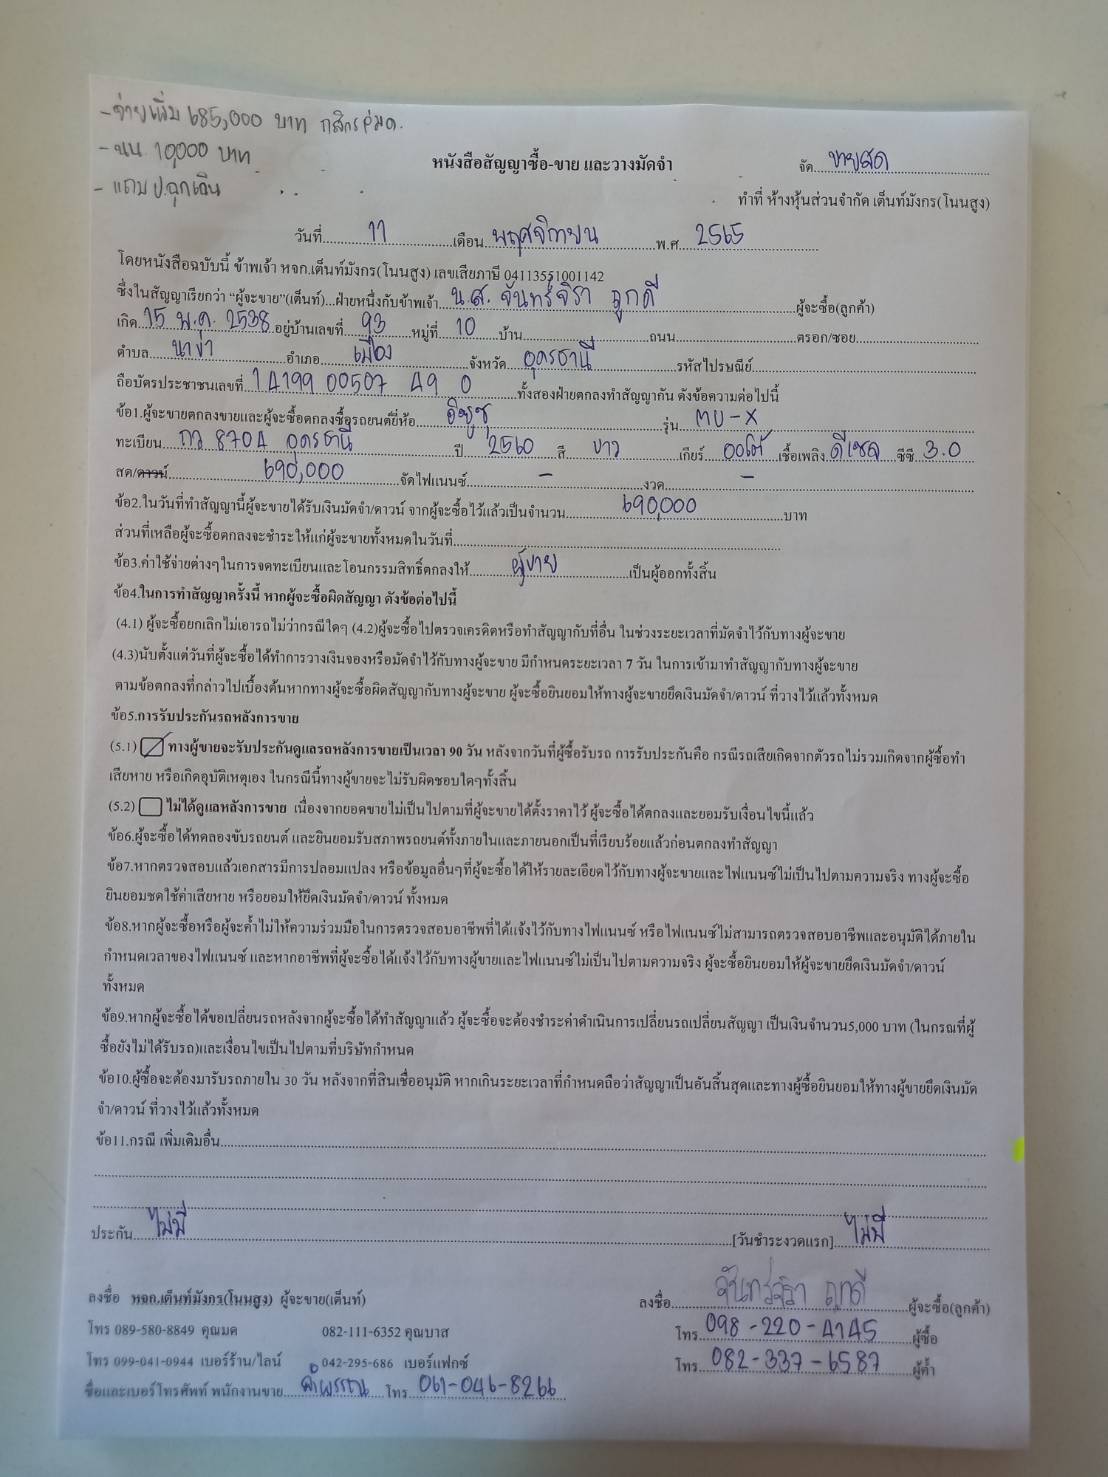 - จ่ายเพิ่ม 685,000 บาท กสิกร
- นน 10,000 บาท
- แถม ป.ฉุกเฉิน
หนังสือสัญญาซื้อ-ขาย และวางมัดจำ
จัด ขายสด
ทำที่ ห้างหุ้นส่วนจำกัด เต็นท์มังกร(โนนสูง)
วันที่ 11 เดือน พฤศจิกายน พ.ศ 2565
โดยหนังสือฉบับนี้ ข้าพเจ้า หจก.เต็นท์มังกร(โนนสูง) เลขเสียภาษี 04113551001142
ซึ่งในสัญญาเรียกว่า “ผู้จะขาย”(เต็นท์)...ฝ่ายหนึ่งกับข้าพเจ้า น.ส. จันทร์จิรา ลูกดี ผู้จะซื้อ(ลูกค้า)
เกิด 15 พ.ค. 2538 อยู่บ้านเลขที่ 93 หมู่ที่ 10 บ้าน ถนน ตรอก/ซอย
ตำบล นาข่า อำเภอ เมือง จังหวัด อุดรธานี รหัสไปรษณีย์
ถือบัตรประชาชนเลขที่ 1 4199 00507 49 0 ทั้งสองฝ่ายตกลงทำสัญญากัน ดังข้อความต่อไปนี้
ข้อ1.ผู้จะขายตกลงขายและผู้จะซื้อตกลงซื้อรถยนต์ยี่ห้อ อีซูซุ รุ่น MU-X
ทะเบียน กว 8704 อุดรธานี ปี 2560 สี ขาว เกียร์ ออโต้ เชื้อเพลิง ดีเซล ซีซี 3.0
สด/ดาวน์ 690,000 จัดไฟแนนซ์ - งวด -
ข้อ2.ในวันที่ทำสัญญานี้ผู้จะขายได้รับเงินมัดจำ/ดาวน์ จากผู้จะซื้อไว้แล้วเป็นจำนวน 690,000 บาท
ส่วนที่เหลือผู้จะซื้อตกลงจะชำระให้แก่ผู้จะขายทั้งหมดในวันที่
ข้อ3.ค่าใช้จ่ายต่างๆในการจดทะเบียนและโอนกรรมสิทธิ์ตกลงให้ ผู้ขาย เป็นผู้ออกทั้งสิ้น
ข้อ4.ในการทำสัญญาครั้งนี้ หากผู้จะซื้อผิดสัญญา ดังข้อต่อไปนี้
(4.1) ผู้จะซื้อยกเลิกไม่เอารถไม่ว่ากรณีใดๆ (4.2)ผู้จะซื้อไปตรวจเครดิตหรือทำสัญญากับที่อื่น ในช่วงระยะเวลาที่มัดจำไว้กับทางผู้จะขาย
(4.3)นับตั้งแต่วันที่ผู้จะซื้อได้ทำการวางเงินจองหรือมัดจำไว้กับทางผู้จะขาย มีกำหนดระยะเวลา 7 วัน ในการเข้ามาทำสัญญากับทางผู้จะขาย
ตามข้อตกลงที่กล่าวไปเบื้องต้นหากทางผู้จะซื้อผิดสัญญากับทางผู้จะขาย ผู้จะซื้อยินยอมให้ทางผู้จะขายยึดเงินมัดจำ/ดาวน์ ที่วางไว้แล้วทั้งหมด
ข้อ5.การรับประกันรถหลังการขาย
(5.1) ทางผู้ขายจะรับประกันดูแลรถหลังการขายเป็นเวลา 90 วัน หลังจากวันที่ผู้ซื้อรับรถ การรับประกันคือ กรณีรถเสียเกิดจากตัวรถไม่รวมเกิดจากผู้ซื้อทำ
เสียหาย หรือเกิดอุบัติเหตุเอง ในกรณีนี้ทางผู้ขายจะไม่รับผิดชอบใดๆทั้งสิ้น
(5.2) ไม่ได้ดูแลหลังการขาย เนื่องจากยอดขายไม่เป็นไปตามที่ผู้จะขายได้ตั้งราคาไว้ ผู้จะซื้อได้ตกลงและยอมรับเงื่อนไขนี้แล้ว
ข้อ6.ผู้จะซื้อได้ทดลองขับรถยนต์ และยินยอมรับสภาพรถยนต์ทั้งภายในและภายนอกเป็นที่เรียบร้อยแล้วก่อนตกลงทำสัญญา
ข้อ7.หากตรวจสอบแล้วเอกสารมีการปลอมแปลง หรือข้อมูลอื่นๆที่ผู้จะซื้อได้ให้รายละเอียดไว้กับทางผู้จะขายและไฟแนนซ์ไม่เป็นไปตามความจริง ทางผู้จะซื้อ
ยินยอมชดใช้ค่าเสียหาย หรือยอมให้ยึดเงินมัดจำ/ดาวน์ ทั้งหมด
ข้อ8.หากผู้จะซื้อหรือผู้จะค้ำไม่ให้ความร่วมมือในการตรวจสอบอาชีพที่ได้แจ้งไว้กับทางไฟแนนซ์ หรือไฟแนนซ์ไม่สามารถตรวจสอบอาชีพและอนุมัติได้ภายใน
กำหนดเวลาของไฟแนนซ์ และหากอาชีพที่ผู้จะซื้อได้แจ้งไว้กับทางผู้ขายและไฟแนนซ์ไม่เป็นไปตามความจริง ผู้จะซื้อยินยอมให้ผู้จะขายยึดเงินมัดจำ/ดาวน์
ทั้งหมด
ข้อ9.หากผู้จะซื้อได้ขอเปลี่ยนรถหลังจากผู้จะซื้อได้ทำสัญญาแล้ว ผู้จะซื้อจะต้องชำระค่าดำเนินการเปลี่ยนรถเปลี่ยนสัญญา เป็นเงินจำนวน5,000 บาท (ในกรณที่ผู้
ซื้อยังไม่ได้รับรถ)และเงื่อนไขเป็นไปตามที่บริษัทกำหนด
ข้อ10.ผู้ซื้อจะต้องมารับรถภายใน 30 วัน หลังจากที่สินเชื่ออนุมัติ หากเกินระยะเวลาที่กำหนดถือว่าสัญญาเป็นอันสิ้นสุดและทางผู้ซื้อยินยอมให้ทางผู้ขายยึดเงินมัด
จำ/ดาวน์ ที่วางไว้แล้วทั้งหมด
ข้อ11.กรณี เพิ่มเติมอื่น
ประกัน ไม่มี [วันชำระงวดแรก] ไม่มี
ลงชื่อ หจก.เต็นท์มังกร(โนนสูง) ผู้จะขาย(เต็นท์) ลงชื่อ จันทร์จิรา ลูกดี ผู้จะซื้อ(ลูกค้า)
โทร 089-580-8849 คุณมด 082-111-6352 คุณบาส โทร 098-220-4145 ผู้ซื้อ
โทร 099-041-0944 เบอร์ร้าน/ไลน์ 042-295-686 เบอร์แฟกซ์ โทร 082-337-6587 ผู้ค้ำ
ชื่อและเบอร์โทรศัพท์ พนักงานขาย ลำพรรณ โทร 061-046-8266